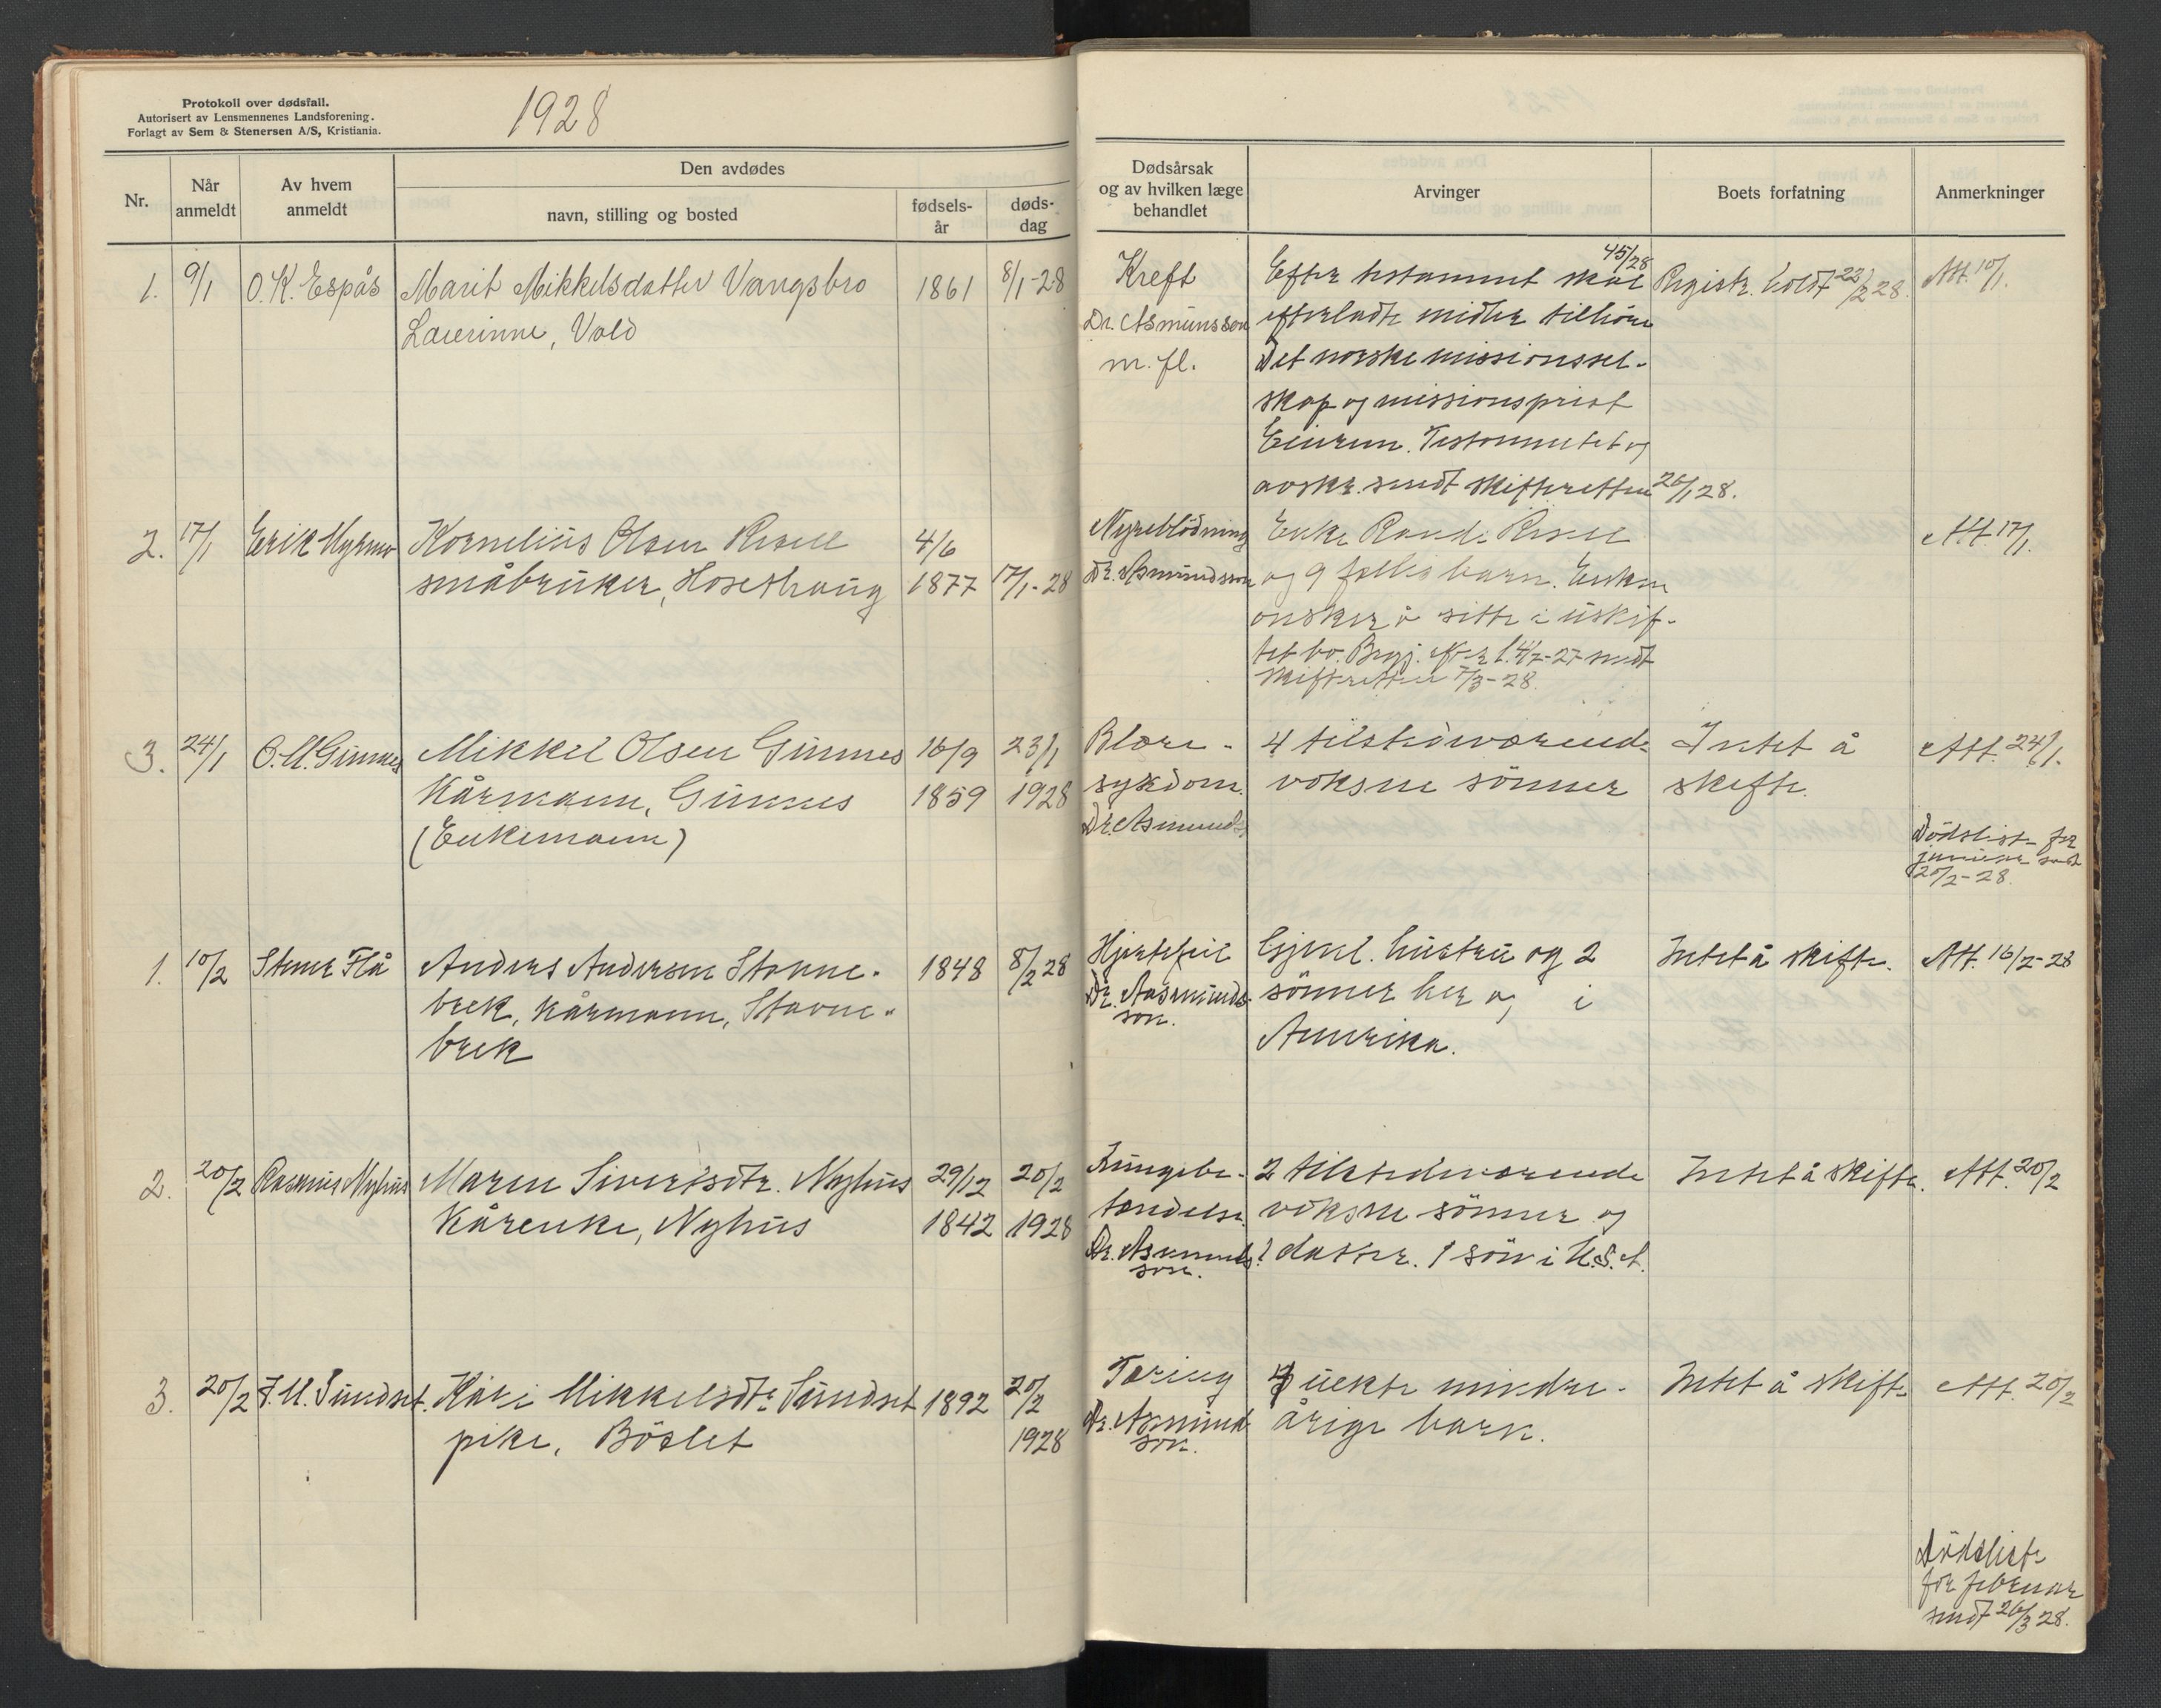 Protokoll over dødsfall.
Autorisert av Lensmennenes Landsforening.
Forlagt av Sem & Stenersen A/S, Kristiania.
1928
Nr.
Når anmeldt
Av hvem anmeldt
Den avdødes
navn, stilling og bosted
fødsels-
år
døds-
dag
Dødsårsak
og av hvilken læge
behandlet
Arvinger
Boets forfatning
Anmerkninger
1. 9/1 O. K. Espås Marit Mikkelsdatter Vangsbro 1861 8/1-28
Lærerinne, Vold
Kreft
Dr. Asmunsson
m. fl.
45/28
Efter testament skal
efterladte midler tilhøre
Det norske missionssel-
skap og missionsprest
Testamentet og
avskr. sendt skifteretten 26/1 28.
Registr. holdt 22/2 28.
Att. 10/1.
2. 17/1 Erik Kornelius Olsen
småbruker, Hosethaug
4/6
1877 17/1-28
Nyreblödning
Dr. Asmundsson
Enke Randi
og 9 felles barn. Enken
ønsker å sitte i uskif-
tet bo.
skifteretten 7/3-28.
Att. 17/1.
3. 24/1 O. M. Gunnes Mikkel Olsen Gunnes 16/9 23/1
Kårmann, Gunnes 1859 1928
(Enkemann)
Blære-
sykdom.
Dr. Asmunds.
4 tilstedeværende
voksne sönner
Intet å
skifte.
Att. 24/1.
Dödsliste for
januar sendt
20/2-28.
1. 10/2 Stener Flå Anders Andersen Stavne- 1848 8/2 28
brek, kårmann, Stavne-
brek
Hjertefeil
Dr. Aasmunds-
son.
Gjenl. hustru og 2
sönner her og i
Amerika.
Intet å skifte.
Att. 16/2-28
2. 20/2 Rasmus Nyhus Maren Sivertsdtr. Nyhus 29/12 20/2
Kårenke, Nyhus 1842 1928
Lungebe-
tændelse.
Dr. Asmunds-
son.
2 tilstedeværende
voksne sönner og
1 datter. 1 sön i U.S.A.
Intet å skifte.
Att. 20/2
3. 20/2 J. M. Sundset. Kari Mikkelsdtr. Sundset 1892 20/2
pike, Böslet 1928
Tæring
Dr. Asmund-
son.
uekte mindre-
årige barn.
Intet å skifte
Att. 20/2
Dödsliste
for februar
sendt 26/3 28.